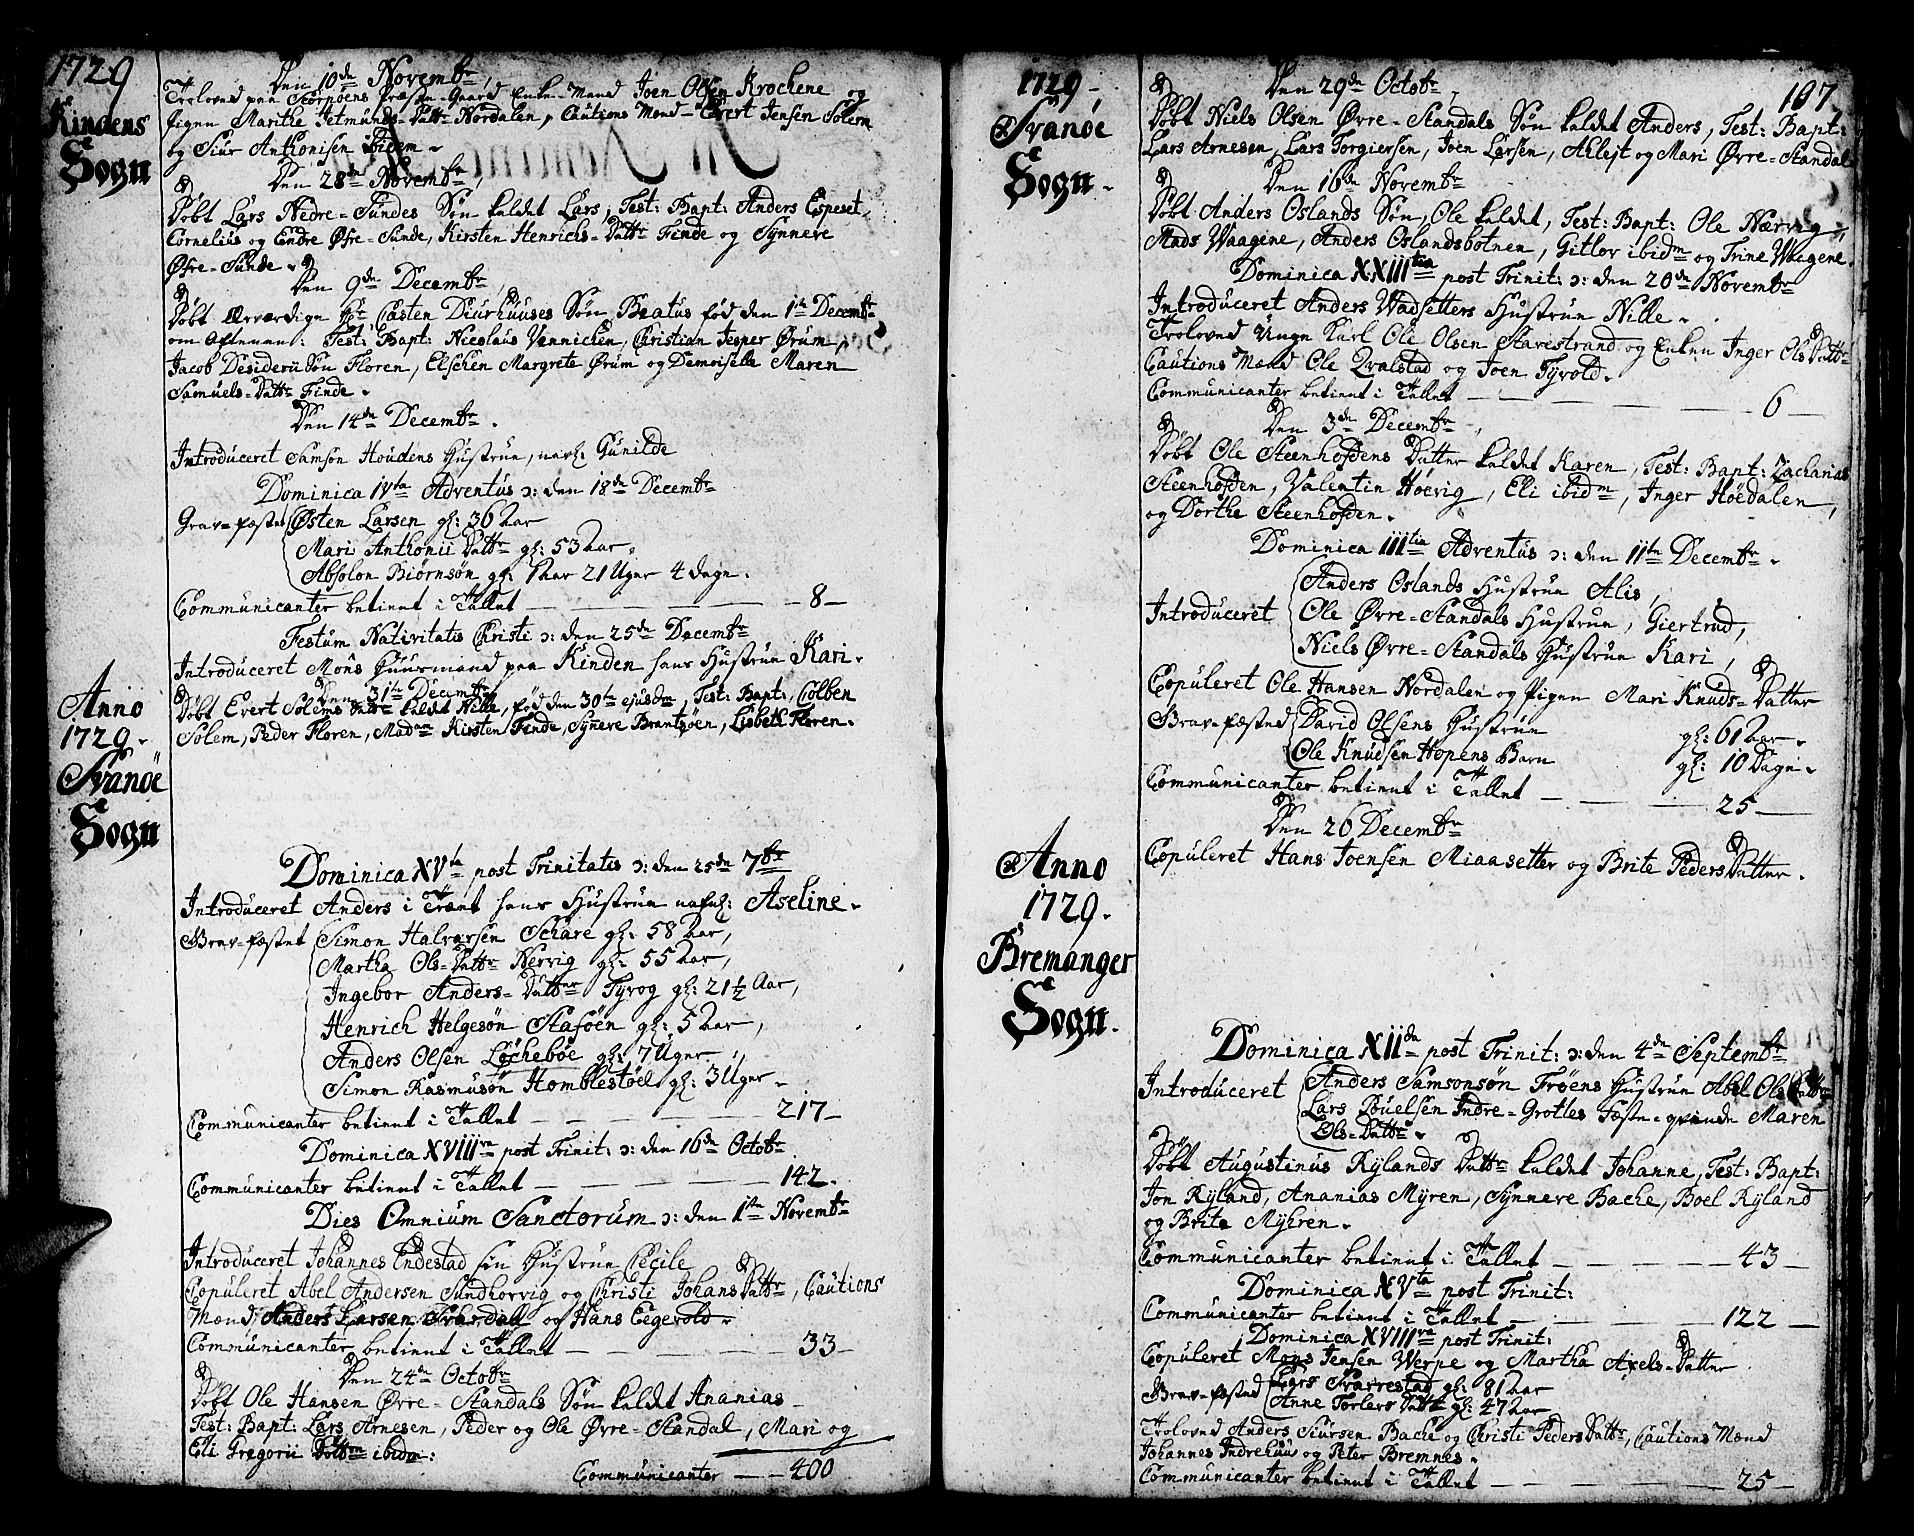 1729
Kindens
Sogn
Den 10de Novembr,
Trolovet paa Storpøens Præste-Gaard Enke-Mand Joen Olsen Krochene og
Pigen Marithe Jetmunds-Dattr Nordalen, Cautions Mænd Evert Jensen Solem
og Siur Anthonisen ibidem.
Den 28de Novembr,
Døbt Lars Nedre-Sundes Søn kaldet Lars, Test: Bapt: Anders Espeset,
Cornelius og Endre Øfre-Sunde, Kirsten Henrichs-Dattr Finde og Synneve
Øfre-Sunde.
Den 9de Decembr,
Døbt Ærværdige Hr Casten Diurhuuses Søn Beatus fød den 1te Decembr
om Aftenen: Test: Bapt: Nicolaus Vennichen, Christian Jesper Ørum,
Jacob Desiderii Søn Floren, Elschen Margrete Ørum og Demoiselle Maren
Samuels-Dattr Finde.
Den 14de Decembr.
Introduceret Samson Houdens Hustrue, navl: Gunilde
Dominica IVta Adventus ɔ: den 18de Decembr
Grav-fæstet Østen Larsen gl: 36 Aar
Mari Anthonii Dattr gl: 53 Aar.
Absolon Biørnsøn gl: 1 Aar 21 Uger 4 Dage.
Communicanter betient i Tallet — 8 —
Festum Nativitatis Christi ɔ: den 25de Decembr
Introduceret Mons Huusmand paa Kinden hans Hustrue Kari.
Den 31te Decembr
Døbt Evert Solems Dattr kaldet Nille, fød den 30te ejusdm Test: Bapt: Colben
Solem, Peder Floren, Madam Kirsten Finde, Synneve Brantsøen, Lisbeth Floren.
Anno
1729.
Svanöe
Sogn
Dominica XVta post Trinitatis ɔ: den 25de 7br
Introduceret Anders i Trænt hans Hustrue nafnl: Aseline.
Grav-fæstet Simon Halvorsen Schare gl: 58 Aar,
Martha Ols-Dattr Nervig gl: 55 Aar,
Ingebor Anders-Datter Tyrog gl: 21½ Aar,
Henrich Helgesøn Staføen gl: 5 Aar,
Anders Olsen Løchebøe gl: 7 Uger,
Simon Rasmusøn Homblestøel gl: 3 Uger.
Communicanter betient i Tallet — 217 —
Dominica XVIIIva post Trinit: ɔ: den 16de Octobr
Communicanter betient i Tallet — 142.
Dies Omnium Sanctorum ɔ: den 1ste Novembr
Introduceret Johannes Endestad sin Hustrue Cecile
Copuleret Abel Andersen Sundhorvig og Christi Johans Dattr, Cautions
Mænd, Anders Larsen og Hans Eegevold.
Communicanter betient i Tallet — 33 —
Den 24de Octobr
Døbt Ole Hansen Øvre-Standals Søn kaldet Ananias
Test: Bapt: Lars Arnesen, Peder og Ole Øvre-Standal, Mari og
Eli Gregorii Dottm ibidm:
Communicanter — 400
1729
Svanøe
Sogn.
107.
Den 29de Octobr,
Døbt Niels Olsen Øvre-Standals Søn kaldet Anders, Test: Bapt:
Lars Arnesen, Lars Torgiersen, Joen Larsen, Allejt og Mari Øvre-Standal
Den 16de Novembr
Døbt Anders Oslands Søn, Ole kaldet, Test: Bapt: Ole Nærvig,
Mads Waagene, Anders Oslandsbotnen, Gitlov ibidm og Trine Waagene.
Dominica XXIIItia post Trinit: ɔ: den 20de Novembr
Introduceret Anders Wadsetters Hustrue Nille.
Trolovet Unge Karl Ole Olsen Starestrand og Enken Inger Ols Dattr
Cautions Mænd Ole Qvalstad og Joen Tyvold.
Communicanter betient i Tallet — 6 —
Den 3de Decembr,
Døbt Ole Steenhofdens Datter kaldet Karen, Test: Bapt: Zacharias
Steenhofden, Valentin Høevig, Eli ibidm, Inger Høedalen,
og Dorthe Steenhofden.
Dominica IIItia Adventus ɔ: den 11te Decembr.
Anders Oslands Hustrue Alis,
Introduceret Ole Øvre-Standals Hustrue, Giertrud,
Niels Øvre-Standals Hustrue Kari,
Copuleret Ole Hansen Nordalen og Pigen Mari Knuds-Datter
Grav-fæsted David Olsens Hustrue gl: 61 Aar.
Ole Knudsen Hopens Barn gl: 10 Dage.
Communicanter betient i Tallet — 25 —
Den 26 Decembr
Copuleret Hans Joensen Miaasetter og Brite Peders Datter.
Anno
1729.
Bremanger
Sogn.
Dominica XIIda post Trinit: ɔ: den 4de Septembr
Introduceret Anders Samsonsøn Frøens Hustrue Abel Ols Dattr
Lars Pouelsen Indre-Grotles Fæste-qvinde Maren
Ols-Dattr.
Døbt Augustinus Rylands Dattr kaldet Johanne, Test: Bapt:
Jon Ryland, Ananias Myren, Synneve Bache, Boel Ryland
og Brite Myhren.
Communicanter betient i Tallet — 43 —
Dominica XVta post Trinit:
Communicanter betient i Tallet — 122 —
Dominica XVIIIva post Trinit:
Copuleret Mons Jensen Werpe og Martha Axels-Datter
Grav-fæsted Lars Svarrestad gl: 81 Aar
Anne Torlevs Dattr gl: 47 Aar
Trolovet Anders Siursen Bache og Christi Peders Dattr, Cautions Mænd
Johannes Indrehuus og Peter Bremnes.
Communicanter betient i Tallet — 25 —